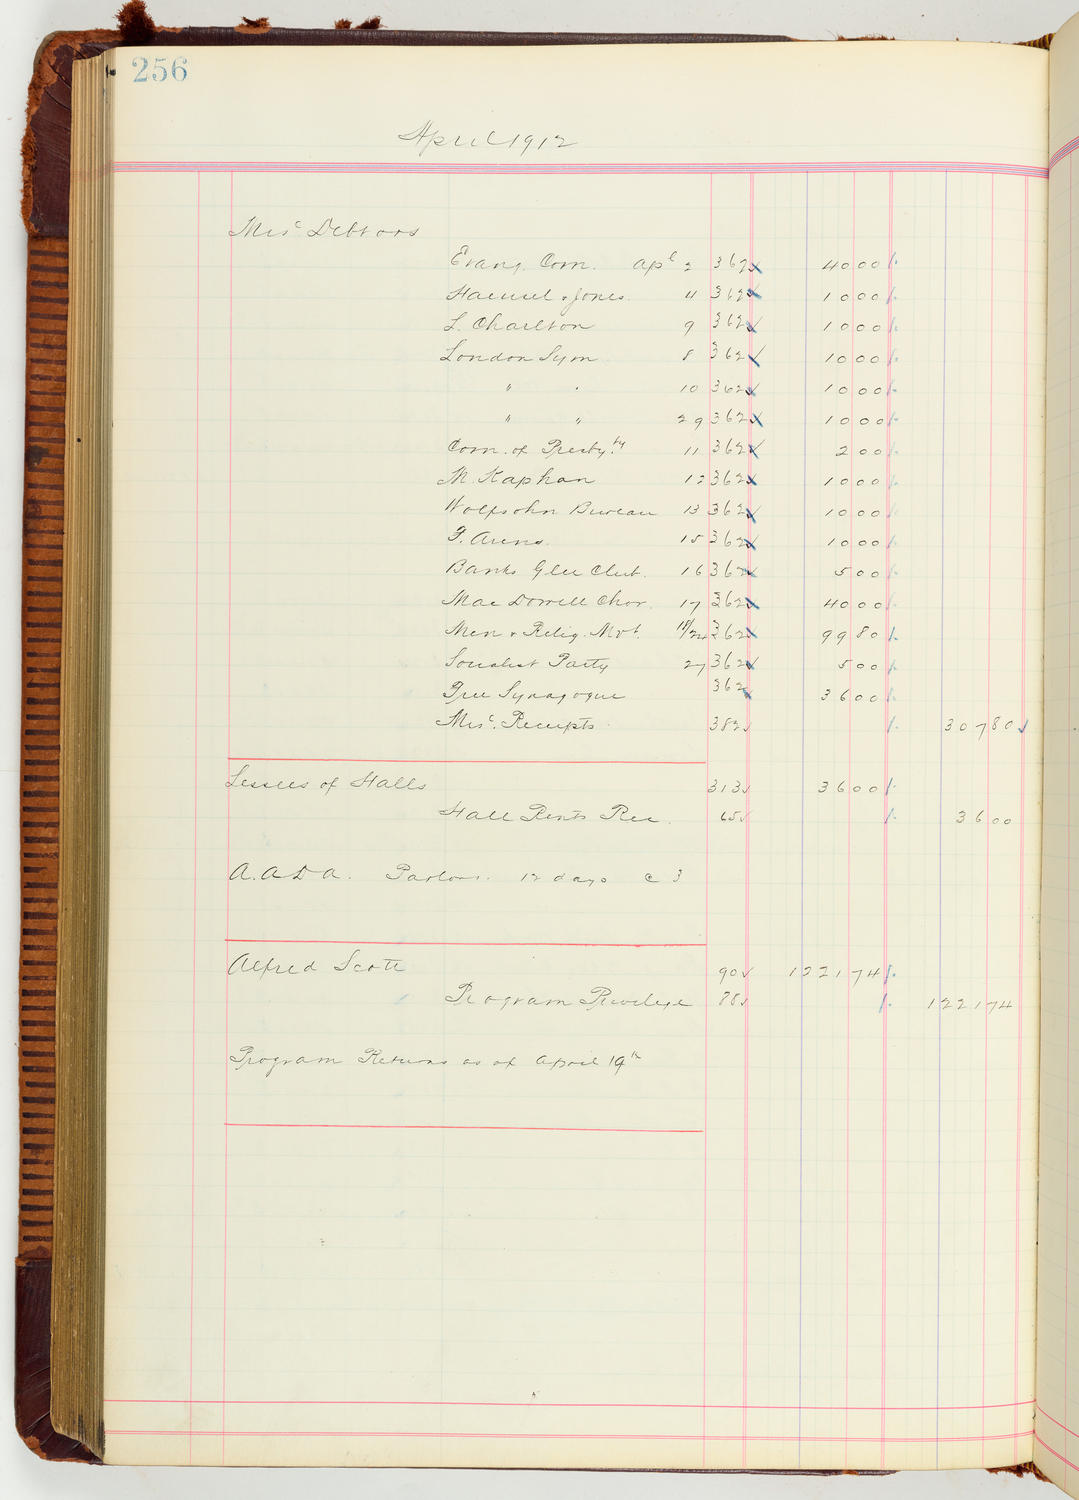 256
April 1912
Misc Debtors
Evang. Com. Apl 2 362 40 00
Haensel & Jones 11 362 10 00
L. Charlton 9 362 10 00
London Sym 8 362 10 00
" " 10 362 10 00
" " 29 362 10 00
Com. of Presby.ty 11 362 2 00
M. Kaphan 12 362 10 00
Wolfsohn Bureau 13 362 10 00
F. Arens. 15 362 10 00
Banks Glee Club. 16 362 5 00
MacDowell Chor. 17 362 40 00
Men & Relig. Mvt. 18/24 362 99 80
Socialist Party 27 362 5 00
Free Synagogue 362 36 00
Misc. Receipts 382 307 80
Lessees of Halls 313 36 00
Hall Rents Rec. 65 36 00
A.A.D.A. Parlors. 12 days @ 3
Alfred Scott 90 1221 74
Program Privilege 88 1221 74
Program Returns as of April 19th